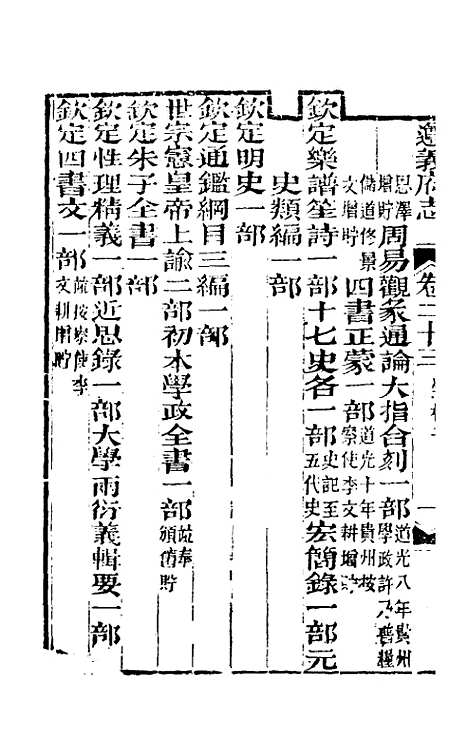 遵義府志 卷二十三
恩澤增貯周易觀象通論大指合刻一部道光八年貴州學政許 督糧
儲道修景文增貯四書正蒙一部道光十年貴州按察使李文耕增
欽定樂譜笙詩一部十七史各一部史記至五代史宏簡錄一部元
史類編一部
欽定明史一部
欽定通鑑綱目三編一部
世宗憲皇帝上諭二部初本學政全書一部疏奉頒備貯
欽定朱子全書一部
欽定性理精義一部近思錄一部大學兩衍義輯要一部
欽定四書文一部疏按察使李文耕增貯